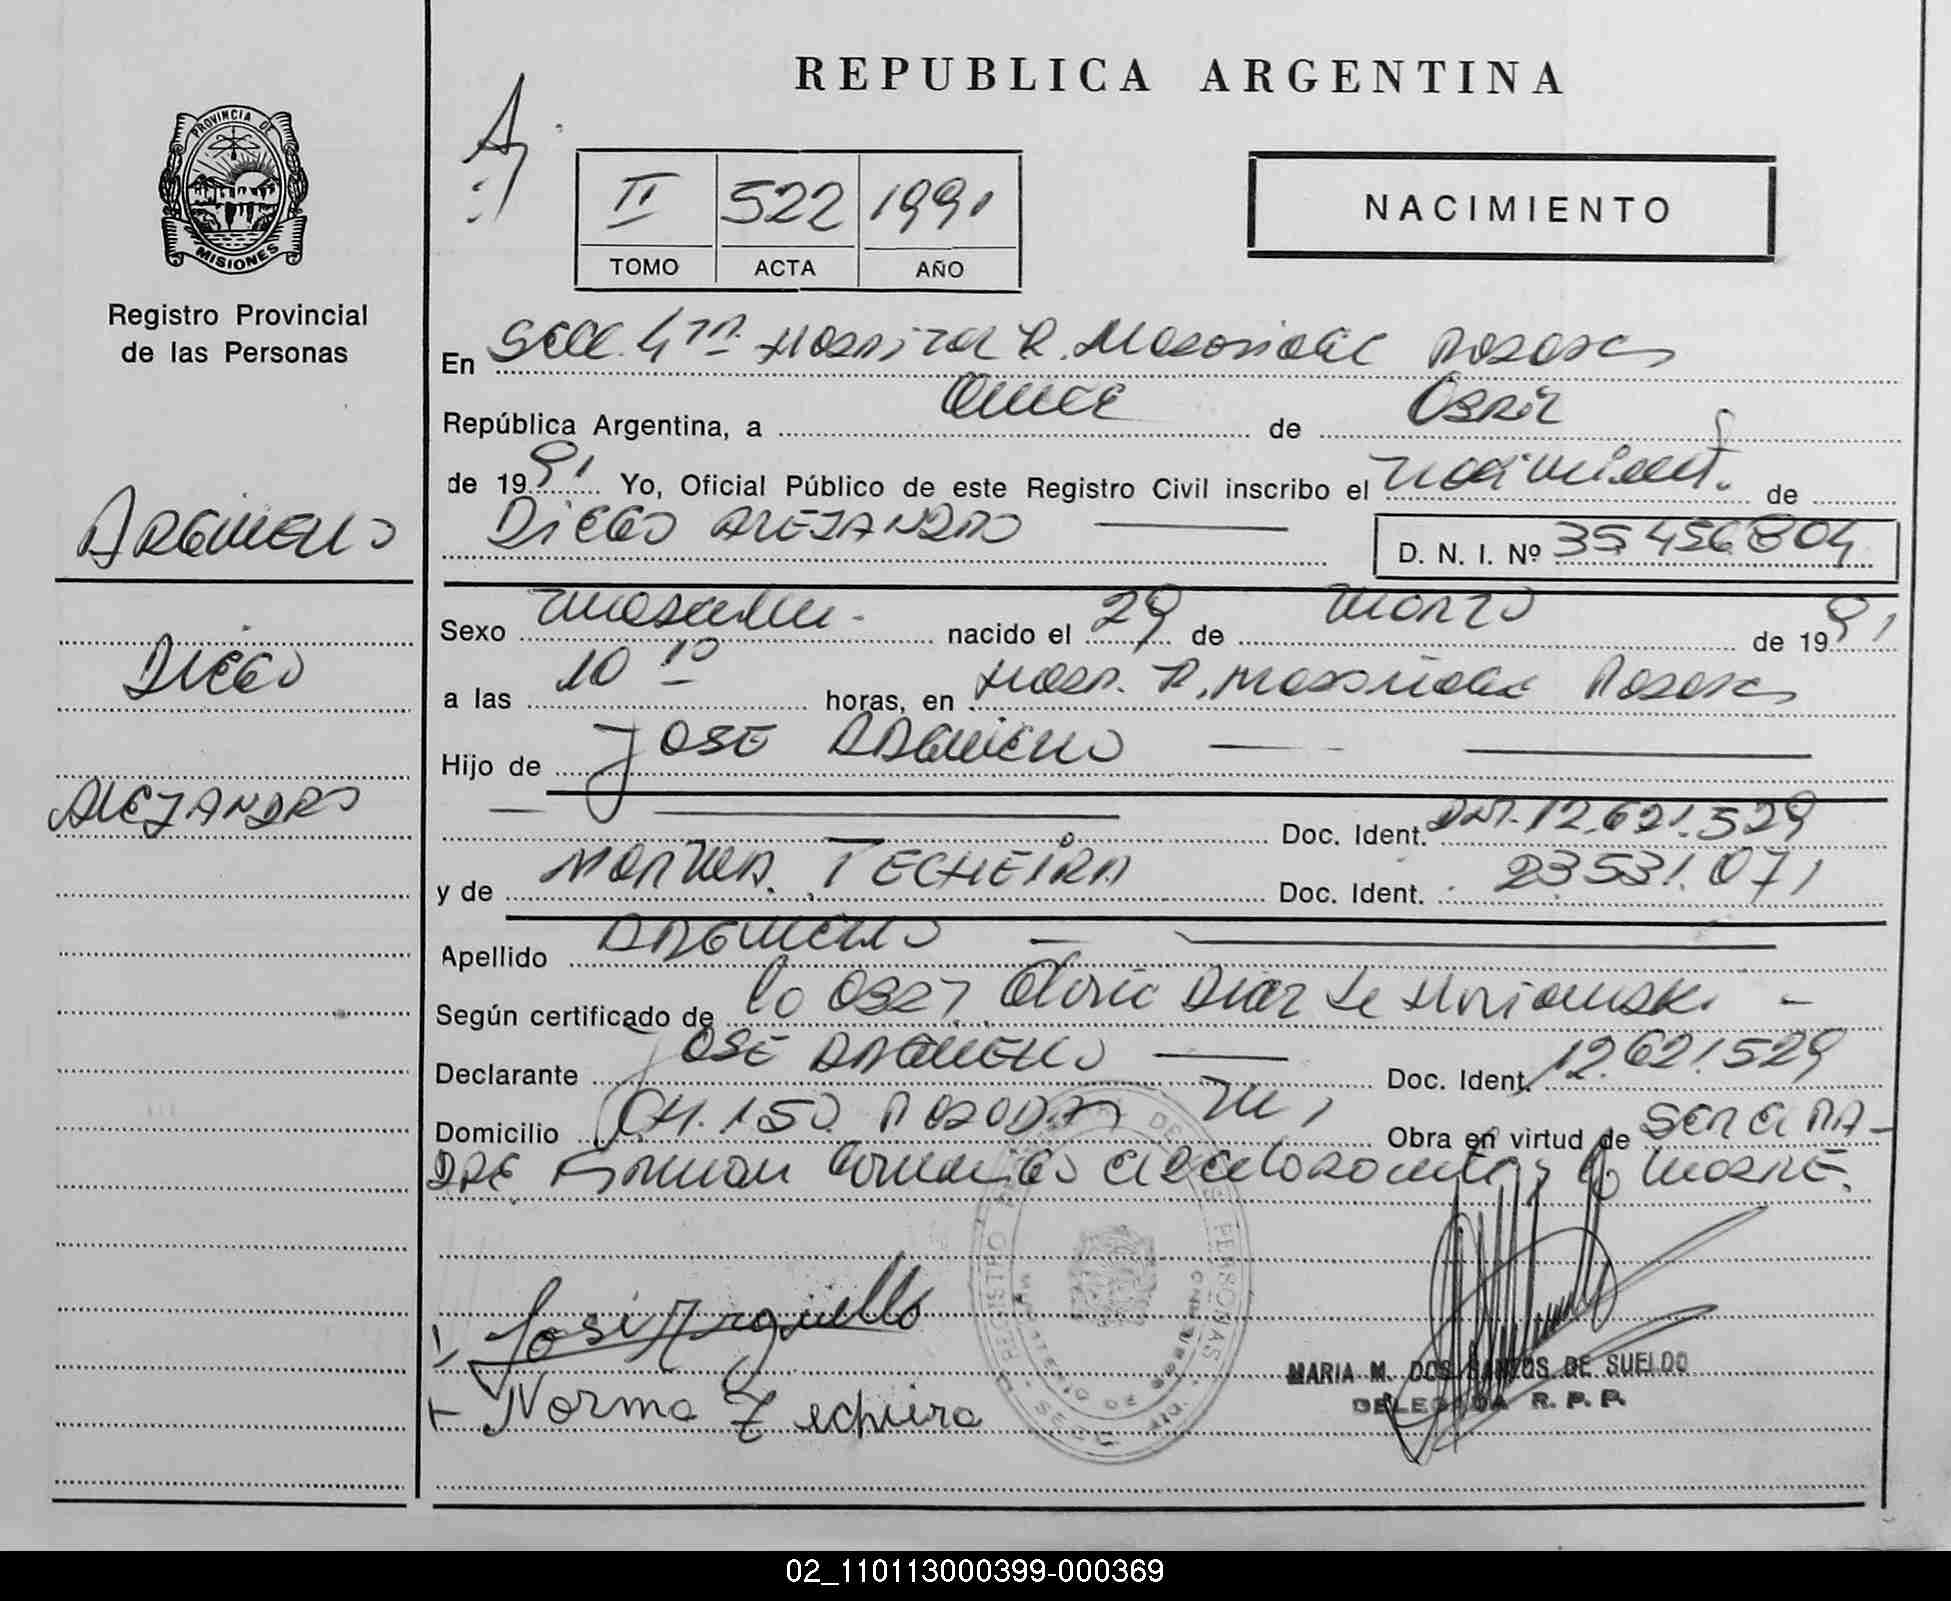 REPUBLICA ARGENTINA
PROVINCIA DE
MISIONES
Registro Provincial
de las Personas
II 522 1991
TOMO ACTA AÑO
NACIMIENTO
En Secc. 4ta Hospital R. Madariaga Posadas
República Argentina, a Once de Abril
de 1991 Yo, Oficial Público de este Registro Civil inscribo el nacimiento de
DIEGO ALEJANDRO
D. N. I. Nº 35456804
ARGUELLO
DIEGO
ALEJANDRO
Sexo masculino nacido el 29 de marzo de 1991
a las 10 10 horas, en Hosp. R. Madariaga Posadas
Hijo de JOSE ARGUELLO
Doc. Ident. DNI. 12.621.529
y de NORMA TECHEIRA Doc. Ident. 23531.071
Apellido ARGUELLO
Según certificado de la Obst. Diaz de
Declarante JOSE ARGUELLO Doc. Ident. 12.621.529
Domicilio CH. 150 POSADAS Mi Obra en virtud de SER EL PA-
DRE Firman el declarante y la MADRE.
José Argüello
Norma Techeira
REGISTRO DE LAS PERSONAS
MARIA M. DOS SANTOS DE SUELDO
DELEGADA R. P. P.
02_110113000399-000369